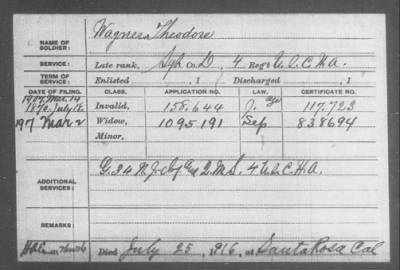 NAME OF SOLDIER: Wagner, Theodore
SERVICE: Late rank, Co. D, 4 Reg't U.S.C.H.A.
TERM OF SERVICE: Enlisted , 1 Discharged , 1
DATE OF FILING. CLASS. APPLICATION NO. LAW. CERTIFICATE NO.
1907 Mar. 14
1874 July Invalid, 158.644 J. age 117.723
1917 Mar 2 Widow, 1095191 Sep 838694
Minor,
ADDITIONAL SERVICES: G. 34 N.J. Inf 2 M.S. 4 U.S.C.H.A.
REMARKS:
Died July 25, 1916, at Santa Rosa Cal